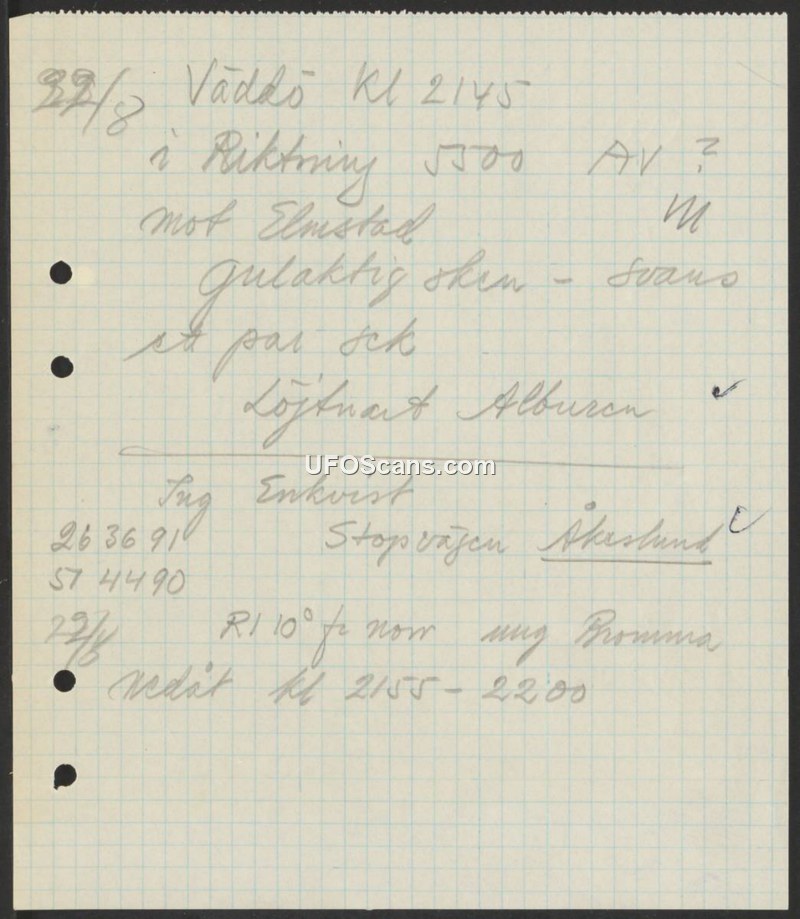 22/8 Väddö Kl 2145
i Riktning 5500 AV ?
mot Elmstad M
Gulaktig sken - svans
ett par sek
Löjtnant Alburen
UFOScans.com
Ing Enkvist
26 36 91 Stopvägen Åkeslund
51 44 90
22/8 RI 10° fr norr ung Bromma
Nedåt kl 2155 - 2200